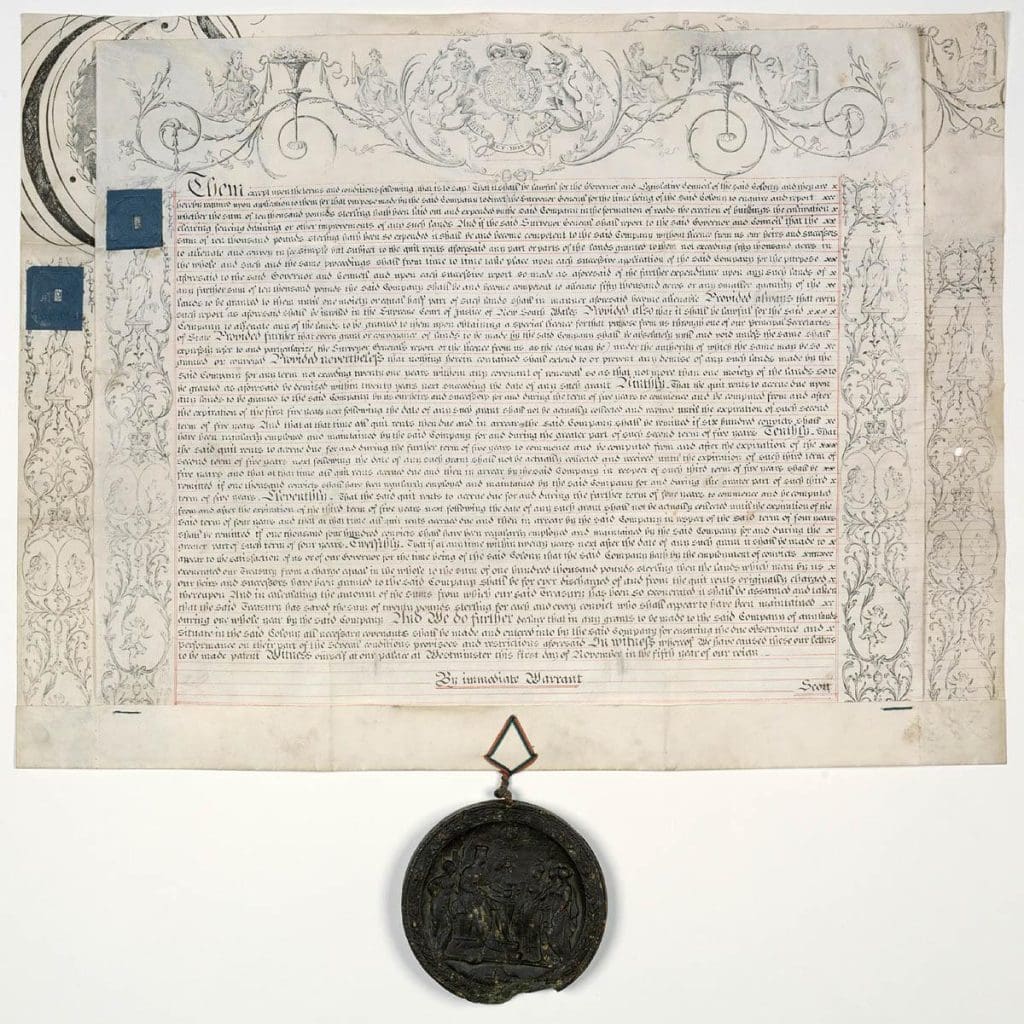 Them except upon the terms and conditions following that is to say That it shall be lawful for the Governor and Legislative Council of the said Colony and they are x
hereby required upon application to them for that purpose made by the said Company to direct the Surveyor General for the time being of the said Colony to enquire and report xxx
whether the sum of ten thousand pounds sterling hath been laid out and expended by the said Company in the formation of roads the erection of buildings the cultivation x
clearing fencing draining or other improvements of any such lands And if the said Surveyor General shall report to the said Governor and Council that the xx
sum of ten thousand pounds sterling hath been so expended it shall be and become competent to the said Company without licence from us our heirs and successors
to alienate and convey in fee simple but subject to the quit rents aforesaid any part or parts of the lands granted to them not exceeding fifty thousand acres in
the whole and such and the same proceedings shall from time to time take place upon each successive application of the said Company for the purpose xx
aforesaid to the said Governor and Council and upon each successive report so made as aforesaid of the further expenditure upon any such lands of x
any further sum of ten thousand pounds the said Company shall be and become competent to alienate fifty thousand acres or any smaller quantity of the xx
lands to be granted to them until one moiety or equal half part of such lands shall in manner aforesaid become alienable Provided always that every
such report as aforesaid shall be inrolled in the Supreme Court of Justice of New South Wales Provided also that it shall be lawful for the said xxx x
Company to alienate any of the lands to be granted to them upon obtaining a special licence for that purpose from us through one of our principal Secretaries
of State Provided further that every grant or conveyance of lands to be made by the said Company shall be absolutely null and void unless the same shall
expressly refer to and particularize the Surveyor General's report or the licence from us as the case may be under the authority of which the same may be so x
granted or conveyed Provided nevertheless that nothing herein contained shall extend to or prevent any demise of any such lands made by the
said Company for any term not exceeding twenty one years without any covenant of renewal so as that not more than one moiety of the lands so to
be granted as aforesaid be demised within twenty years next succeeding the date of any such grant Ninthly That the quit rents to accrue due upon
any lands to be granted to the said Company by us our heirs and successors for and during the term of five years to commence and be computed from and after
the expiration of the first five years next following the date of any such grant shall not be actually collected and received until the expiration of such second
term of five years And that at that time all quit rents then due and in arrear by the said Company shall be remitted if six hundred convicts shall xx
have been regularly employed and maintained by the said Company for and during the greater part of such second term of five years Tenthly That
the said quit rents to accrue due for and during the further term of five years to commence and be computed from and after the expiration of the xxx
second term of five years next following the date of any such grant shall not be actually collected and received until the expiration of such third term of
five years and that at that time all quit rents accrued due and then in arrear by the said Company in respect of such third term of five years shall be xx
remitted if one thousand convicts shall have been regularly employed and maintained by the said Company for and during the greater part of such third x
term of five years Eleventhly That the said quit rents to accrue due for and during the further term of four years to commence and be computed
from and after the expiration of the third term of five years next following the date of any such grant shall not be actually collected until the expiration of the
said term of four years and that at that time all quit rents accrued due and then in arrear by the said Company in respect of the said term of four years
shall be remitted if one thousand four hundred convicts shall have been regularly employed and maintained by the said Company for and during the x
greater part of such term of four years Twelfthly That if at any time within twenty years next after the date of any such grant it shall be made to x
appear to the satisfaction of us or of our Governor for the time being of the said Colony that the said Company hath by the employment of convicts
exonerated our Treasury from a charge equal in the whole to the sum of one hundred thousand pounds sterling then the lands which may by us x
our heirs and successors have been granted to the said Company shall be for ever discharged of and from the quit rents originally charged x
thereupon And in calculating the amount of the sums from which our said Treasury has been so exonerated it shall be assumed and taken
that the said Treasury has saved the sum of twenty pounds sterling for each and every convict who shall appear to have been maintained xx
during one whole year by the said Company And We do further declare that in any grants to be made to the said Company of any lands
situate in the said Colony all necessary covenants shall be made and entered into by the said Company for ensuring the due observance and x
performance on their part of the several conditions provisoes and restrictions aforesaid In witness whereof We have caused these our letters
to be made patent Witness ourself at our palace at Westminster this first day of November in the fifth year of our reign
By immediate Warrant
Scott